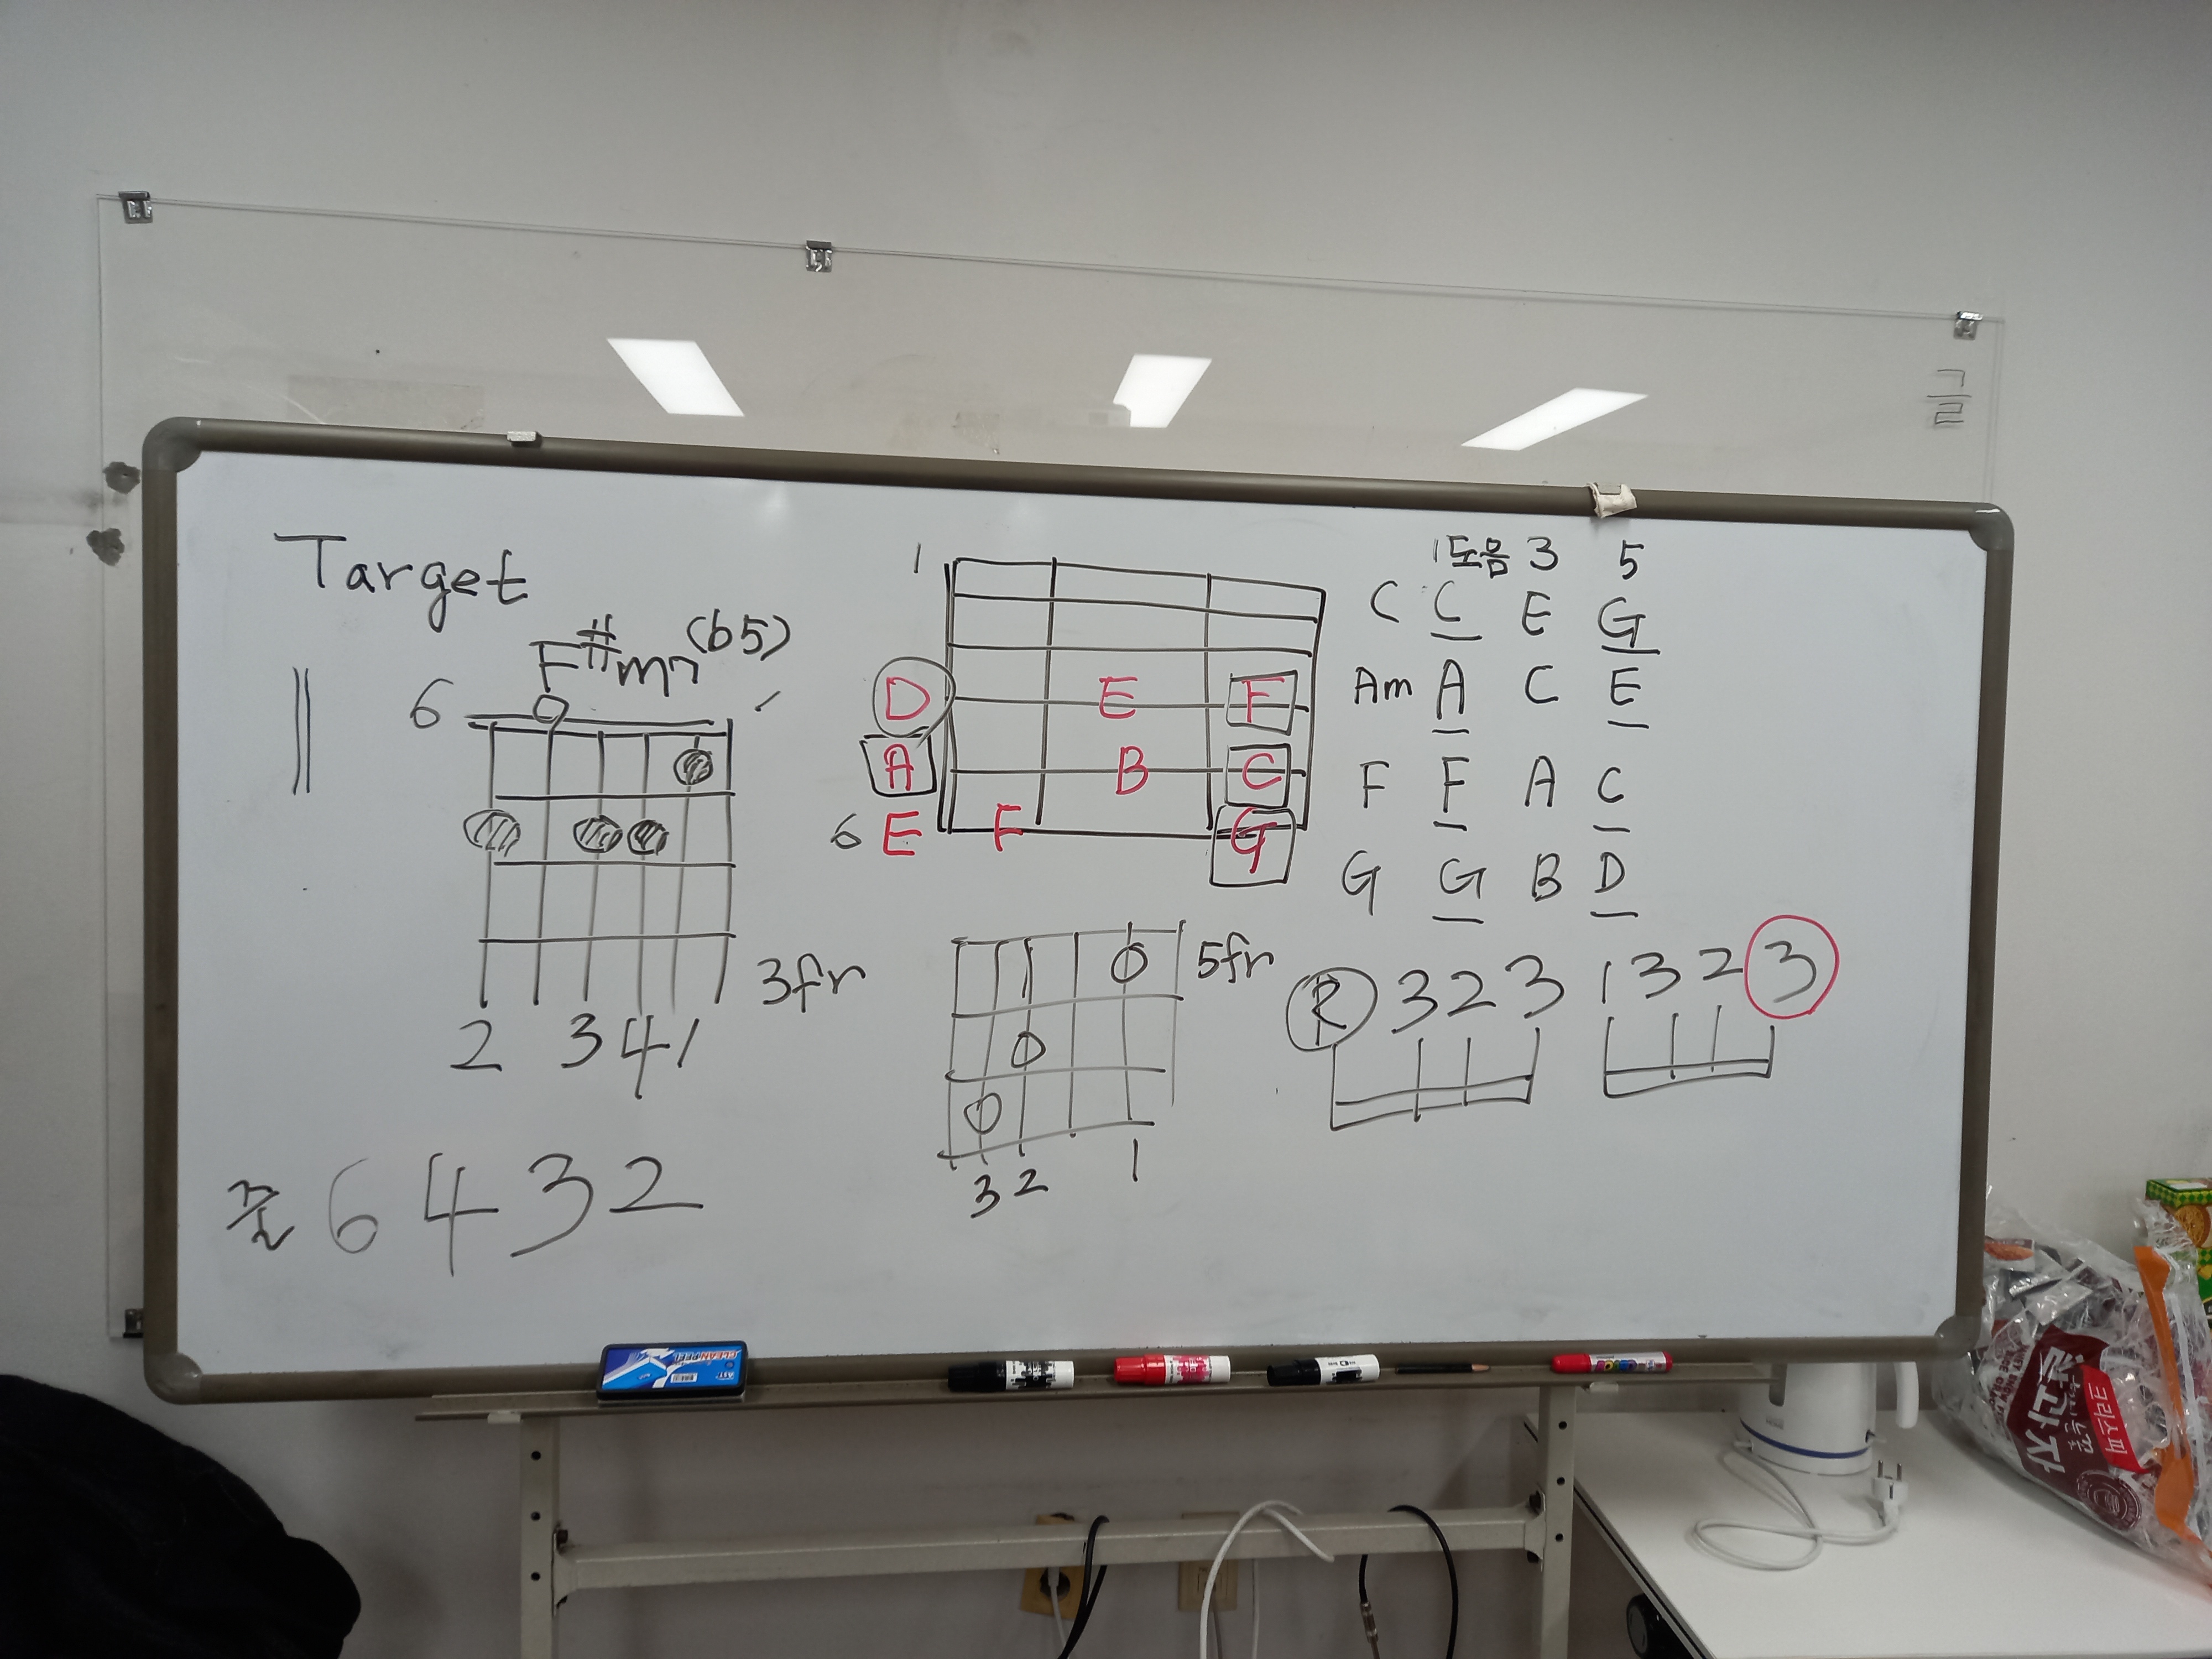 Target
F#m7(b5)
6
3fr
2 3 4 1
줄 6 4 3 2
1
D E F
A B C
6 E F G
5fr
3 2 1
1도음 3 5
C C E G
Am A C E
F F A C
G G B D
R 3 2 3 1 3 2 3
글
CLEAN PEEL
크리스피